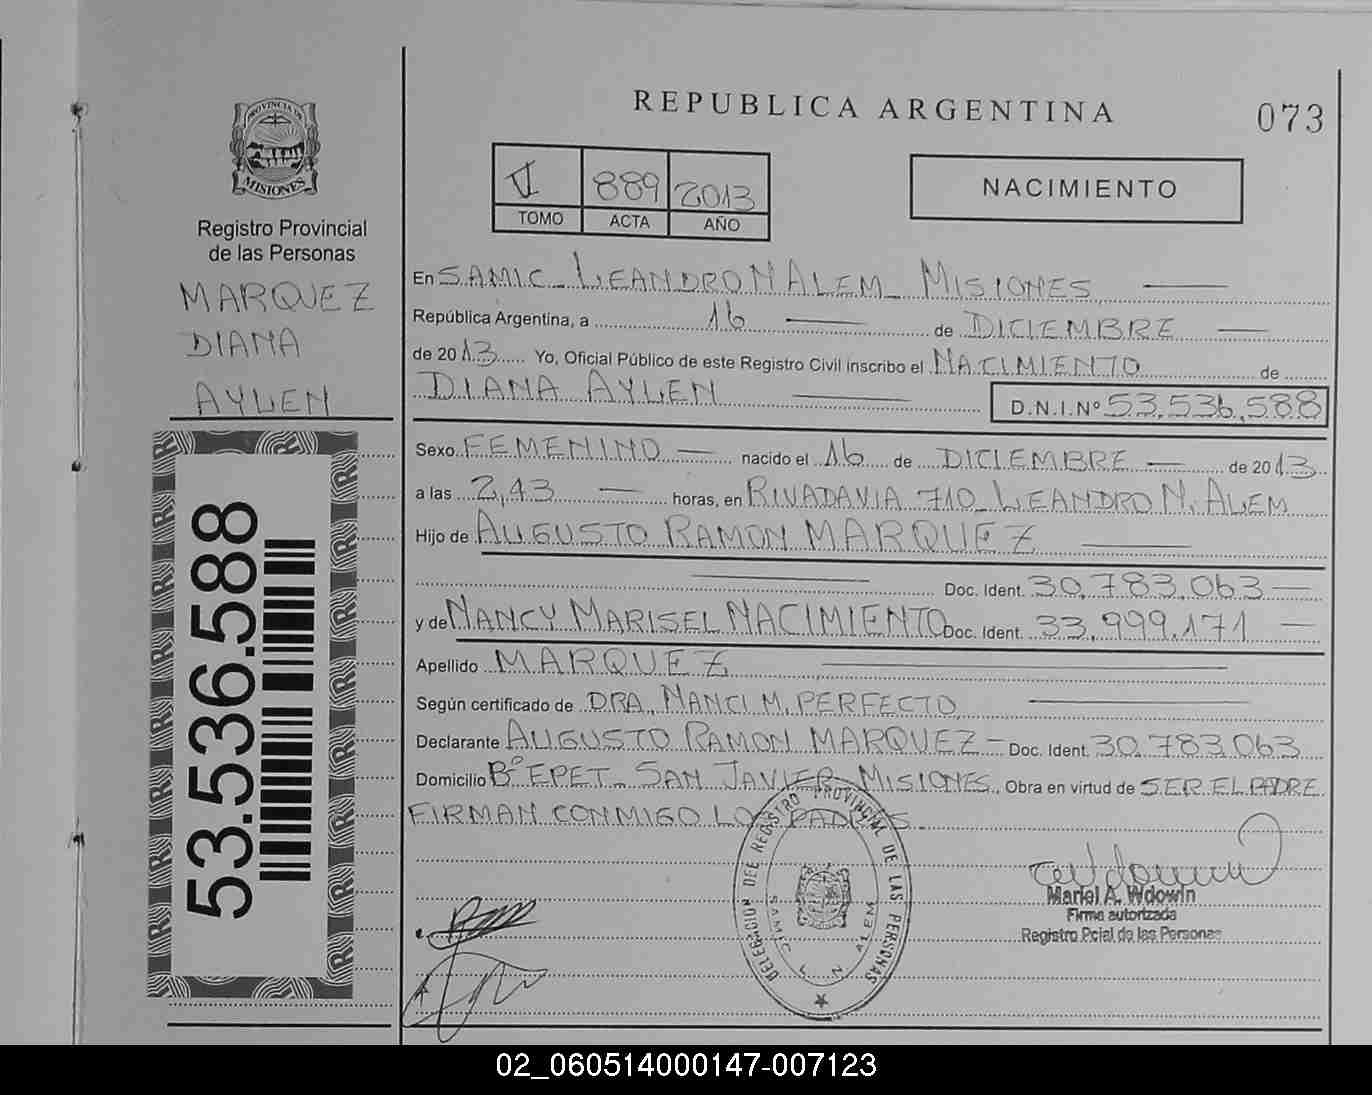 REPUBLICA ARGENTINA
073
PROVINCIA DE
MISIONES
Registro Provincial
de las Personas
MARQUEZ
DIANA
AYLEN
53.536.588
889 2013
TOMO ACTA AÑO
NACIMIENTO
En SAMIC LEANDRO N ALEM MISIONES
República Argentina, a 16 de DICIEMBRE
de 2013 Yo, Oficial Público de este Registro Civil inscribo el NACIMIENTO de
DIANA AYLEN
D.N.I.Nº 53.536.588
Sexo FEMENINO nacido el 16 de DICIEMBRE de 2013
a las 2,43 horas, en RIVADAVIA 710 LEANDRO N. ALEM
Hijo de AUGUSTO RAMON MARQUEZ
Doc. Ident. 30.783.063
y de NANCY MARISEL NACIMIENTO Doc. Ident. 33.999.171
Apellido MARQUEZ
Según certificado de DRA. NANCI M. PERFECTO
Declarante AUGUSTO RAMON MARQUEZ Doc. Ident. 30.783.063
Domicilio Bº EPET SAN JAVIER MISIONES. Obra en virtud de SER EL PADRE
FIRMAN CONMIGO LOS PADRES
DELEGACION DEL REGISTRO PROVINCIAL DE LAS PERSONAS
SAMIC L N ALEM
Mariel A. Wdowin
Firma autorizada
Registro Pcial de las Personas
02_060514000147-007123